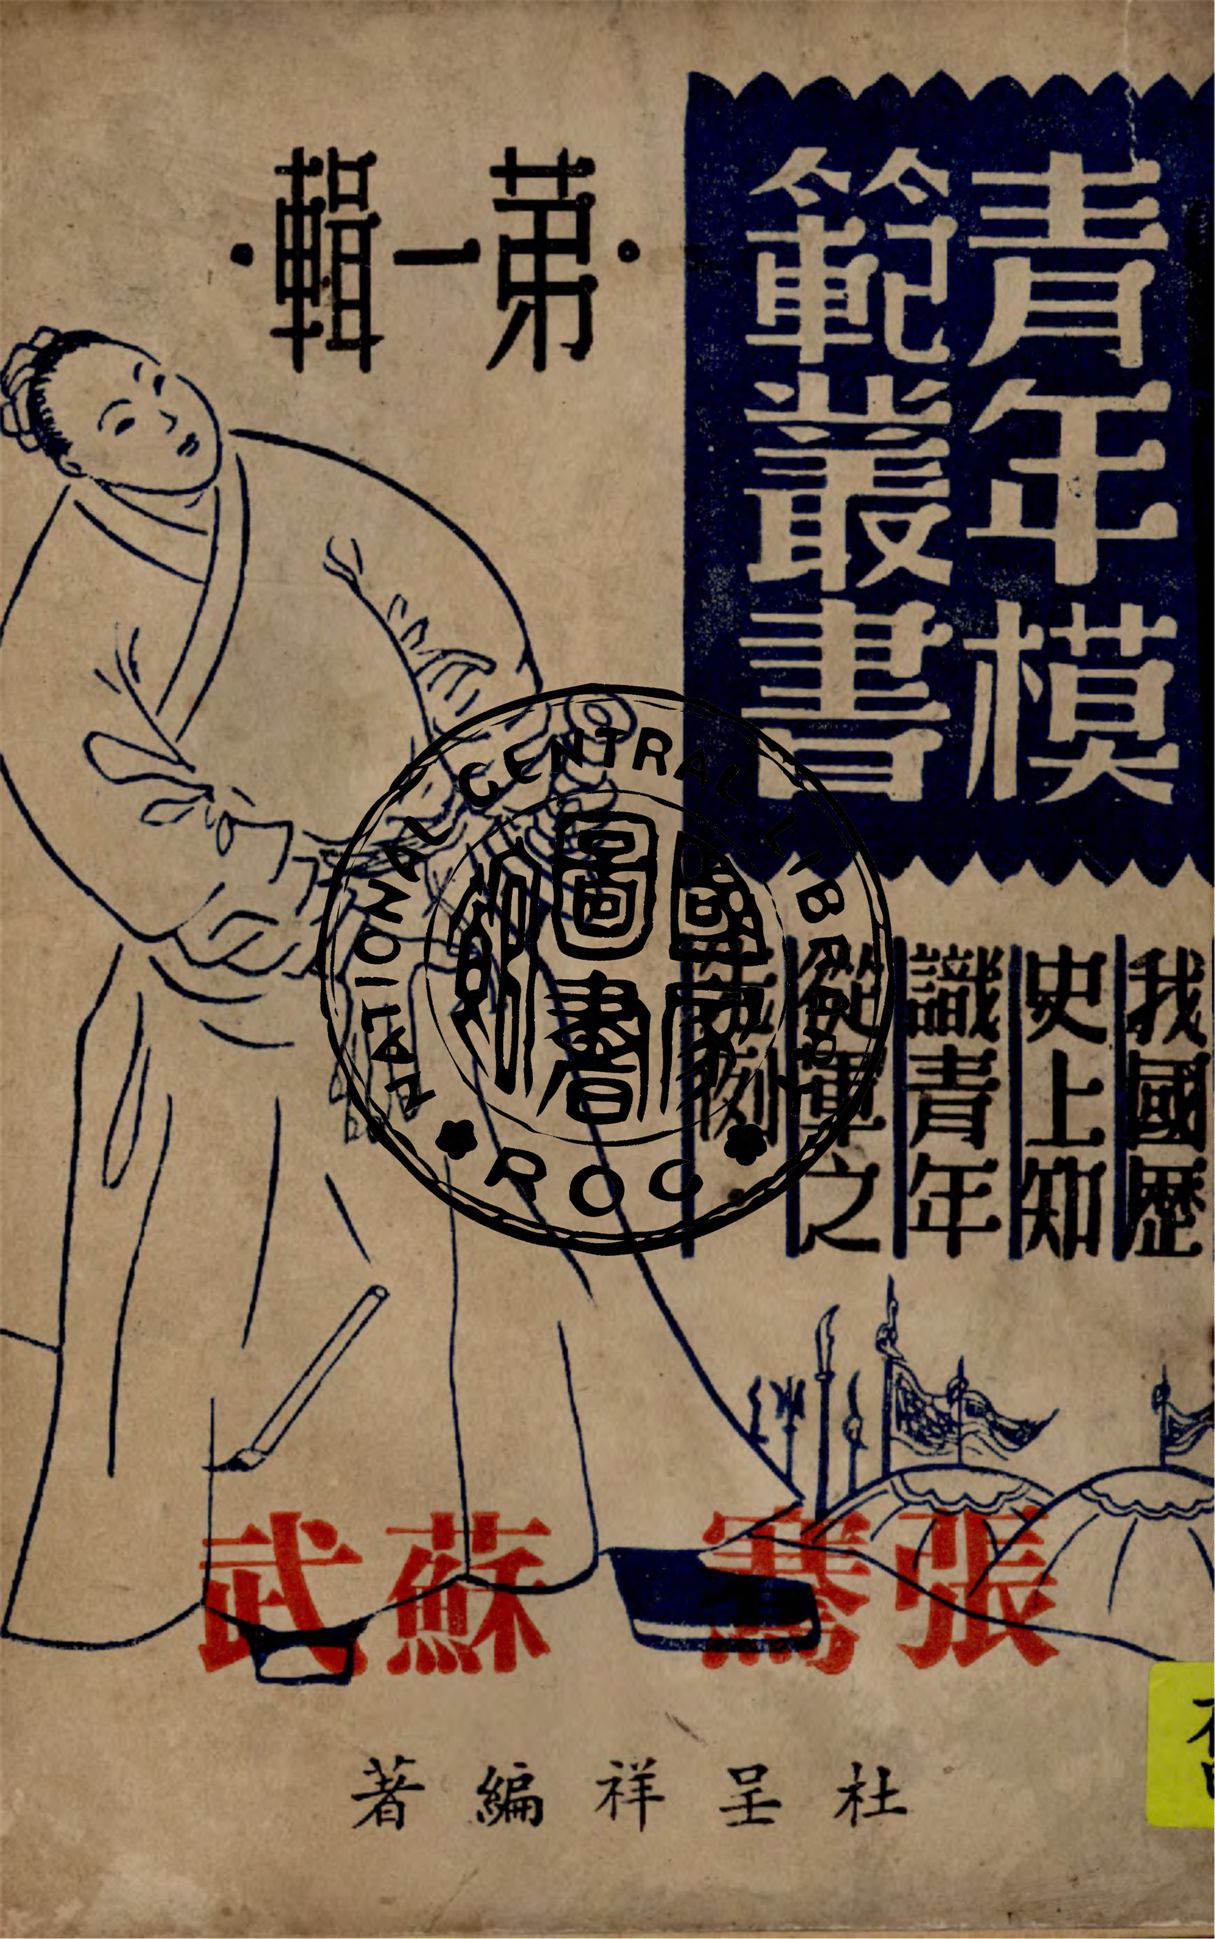 青年模
範叢書
·第一輯·
我國歷
史上知
識青年
從軍之
先例·
張騫 蘇武
杜呈祥編著
NATIONAL CENTRAL LIBRARY
國家圖書館
ROC